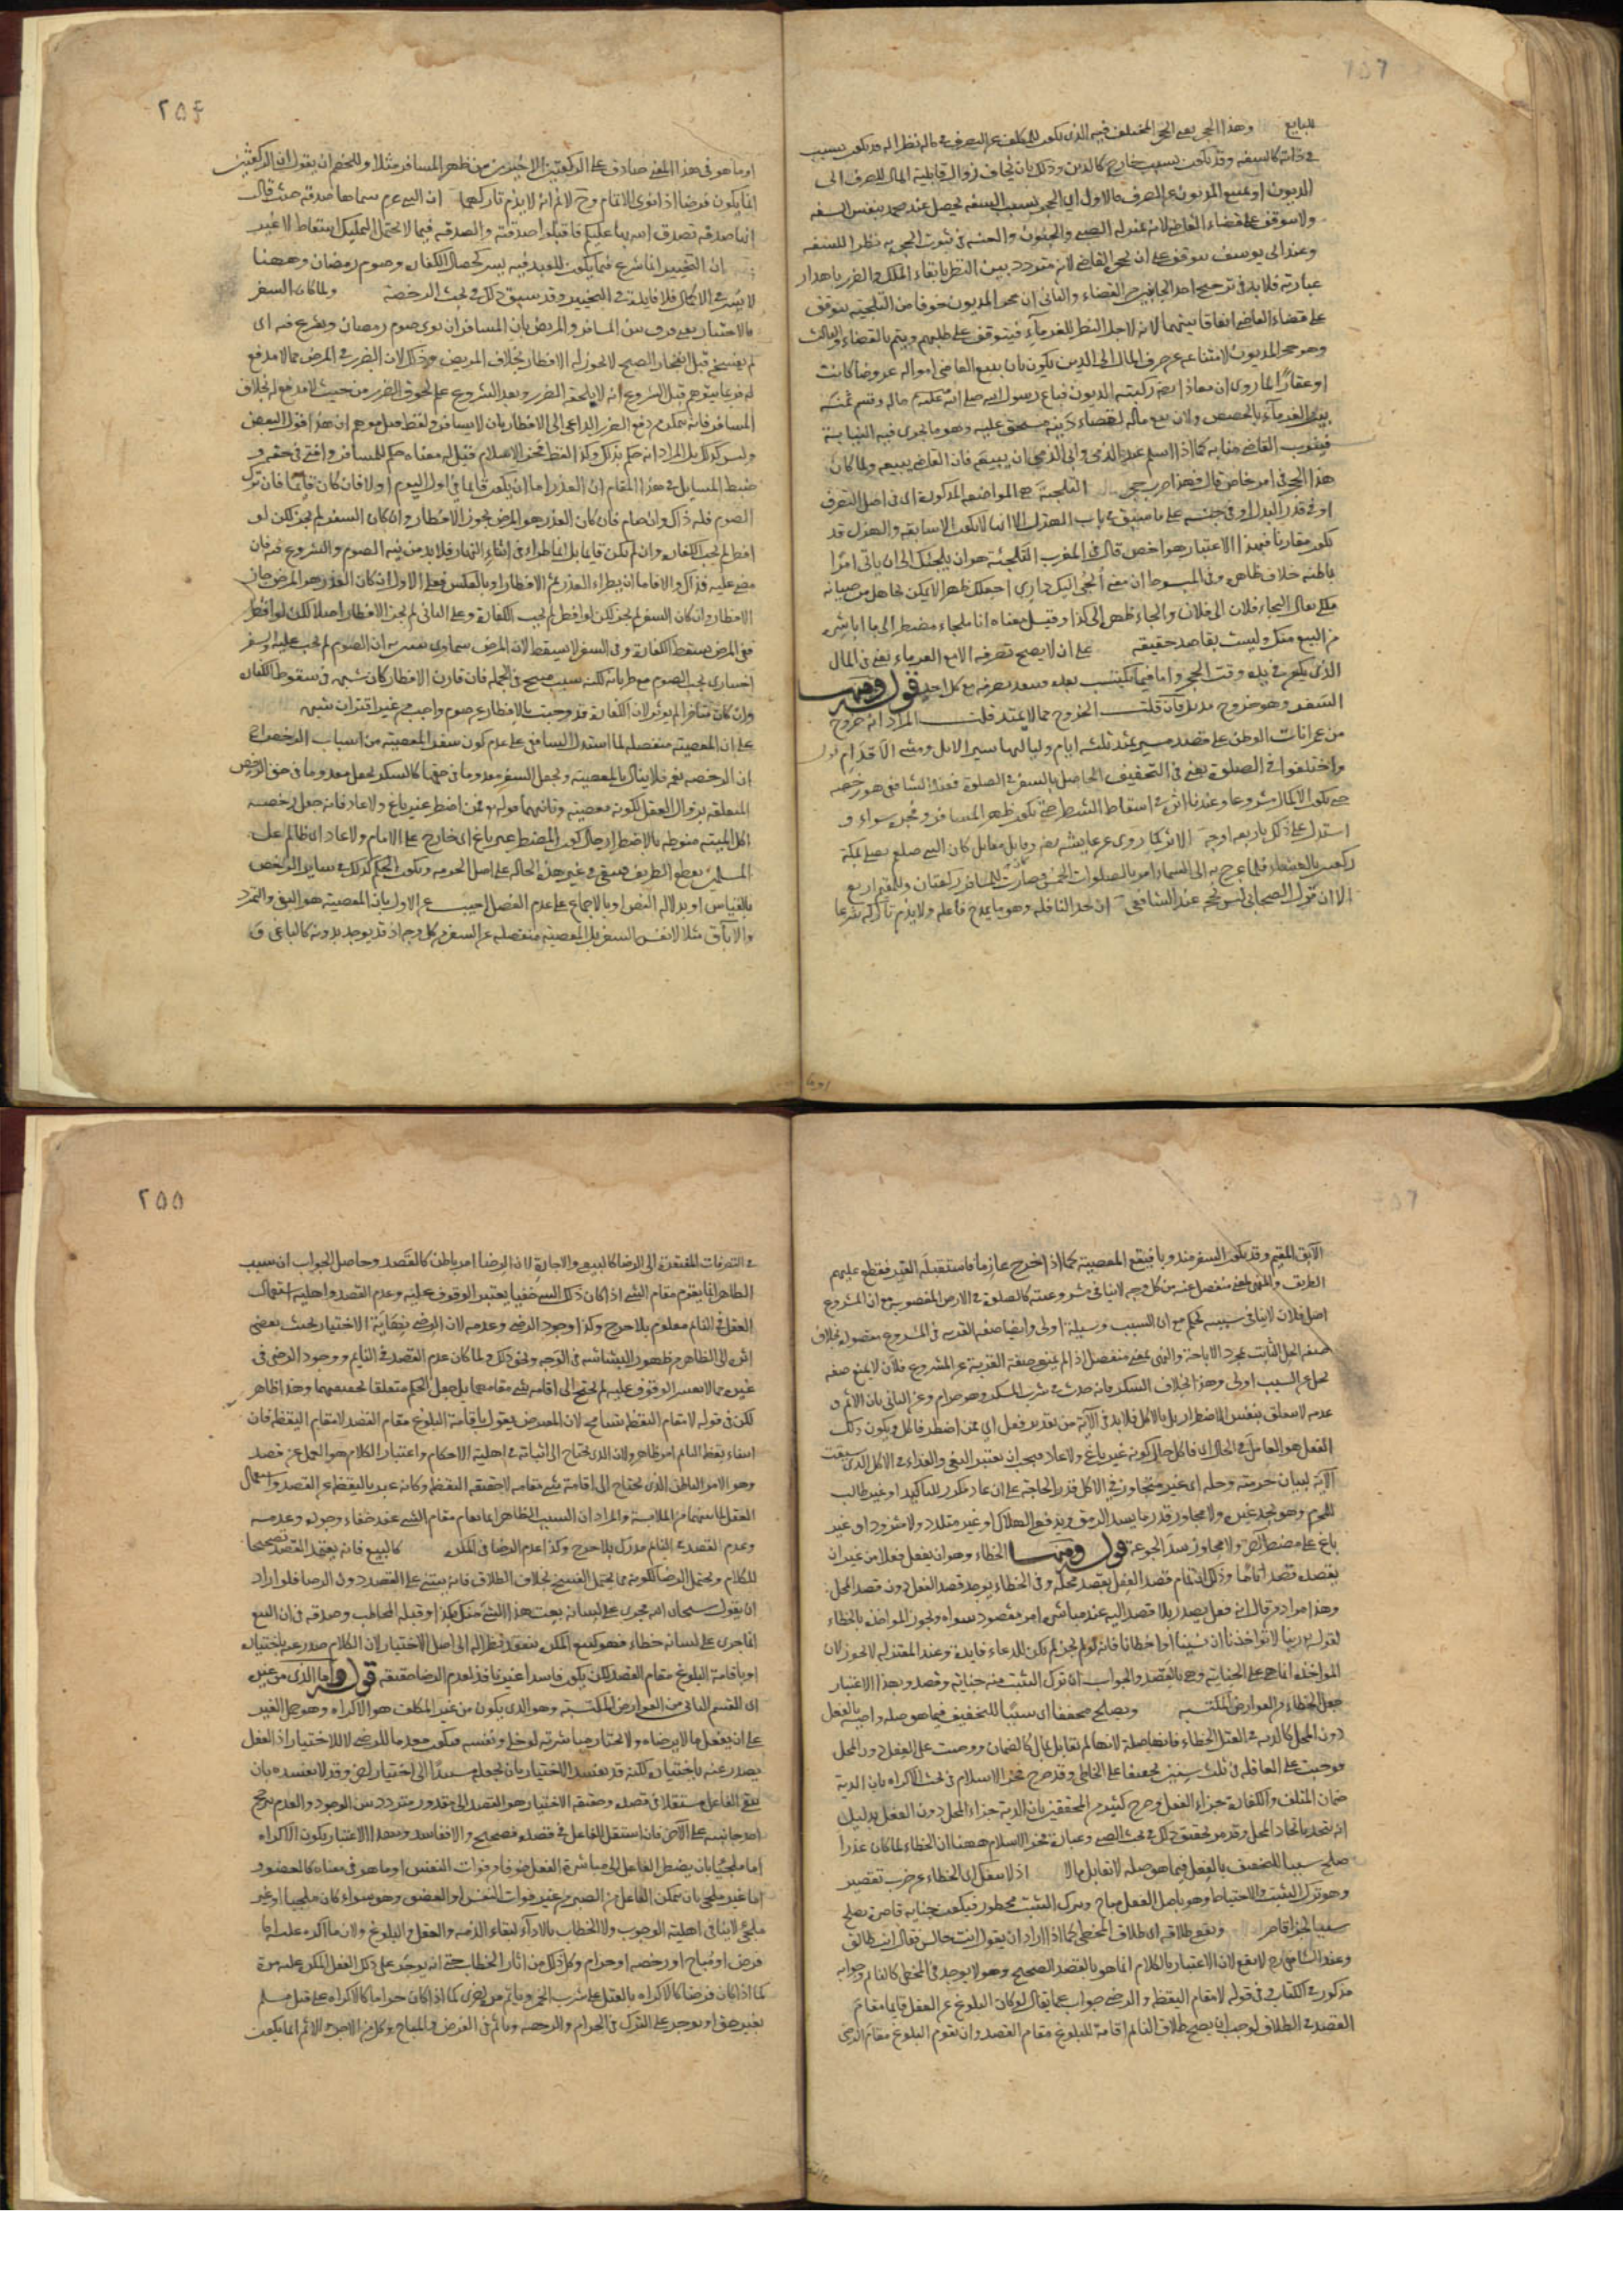 للبايع وهذا الحجر يعني الحجر المختلف فيه الذي يكون للمكلف عن التصرف في ماله نظرا له قد يكون بسبب
في ذاته كالسفه وقد يكون بسبب خارج كالدين وذلك بان يخاف زوال قابلية المال للصرف الى
الديون او يمتنع المديون عن الصرف فالاول اي الحجر بسبب السفه يحصل عند محمد بنفس السفه
ولا يتوقف على قضاء القاضي لانه بمنزلة الصبي والجنون والعته في ثبوت الحجر به نظرا للسفيه
وعند ابي يوسف يتوقف على ان يحجر القاضي لانه متردد بين النظر بابقاء الملك والضرر باهدار
عبارته فلا بد في ترجيح احد الجانبين من القضاء والثاني ان حجر المديون خوفا من التلجئة يتوقف
على قضاء القاضي اتفاقا بينهما لانه لاجل النظر للغرماء فيتوقف على طلبهم ويتم بالقضاء والثالث
وهو حجر المديون لامتناعه عن صرف المال الى الدين يكون بان يبيع القاضي امواله عروضا كانت
او عقارا لما روي ان معاذا رضه ركبته الديون فباع رسول الله صلى الله عليه ماله وقسم ثمنه
بين الغرماء بالحصص ولان بيع ماله لقضاء دينه مستحق عليه وهو مما يجري فيه النيابة
فينوب القاضي منابه كما اذا اسلم عبد الذمي وابى الذمي ان يبيعه فان القاضي يبيعه ولما كان
هذا الحجر في امر خاص قال فهذا ضرب حجر التلجئة هي المواضعة المذكورة اي في اصل التصرف
او في قدر البدل او في جنسه على ما سبق في باب الهزل الا انها لا تكون الا سابقة والهزل قد
يكون مقارنا فبهذا الاعتبار هو اخص قال في المغرب التلجئة هو ان يلجئك الى ان ياتي امرا
باطنه خلاف ظاهره وفي المبسوط ان معنى الجئ اليك داري اجعلك ظهرا لاتمكن بجاهك من صيانة
ملكي يقال التجأ فلان الى فلان والجأ ظهره الى كذا وقيل معناه انا ملجأ مضطر الى ما اباشره
من البيع منك وليست بقاصد حقيقة على ان لا يصح تصرفه الا مع الغرماء يعني في المال
الذي يكون في يده وقت الحجر واما فيما يكتسب بعده فينفذ تصرفه مع كل احد قوله ومنها
السفر وهو خروج مديد فان قلت الخروج مما لا يمتد قلت المراد انه خروج
من عمرانات الوطن على قصد مسير يمتد ثلثة ايام ولياليها سير الابل ومشي الاقدام قوله
واختلفوا في الصلوة يعني في التخفيف الحاصل بالسفر في الصلوة فعند الشافعي هو رخصة
حتى يكون الاكمال مشروعا وعندنا اثره في اسقاط الشطر حتى يكون ظهر المسافر وفجره سواء و
استدل على ذلك باربعة اوجه الاثر كما روى عن عايشة رضه وقال مقاتل كان النبي صلعم يصلي بمكة
ركعتين بالغداة فلما عرج به الى السماء امر بالصلوات الخمس فصارت للمسافر ركعتان وللمقيم اربع
الا ان قول الصحابي ليس بحجة عند الشافعي ان حد النافلة وهو ما يمدح فاعله ولا يذم تاركه شرعا
اوما
٢٥٤
او ما هو في هذا المعنى صادق على الركعتين الاخيرتين من ظهر المسافر مثلا وللخصم ان يقول ان الركعتين
انما يكون فرضا اذا نوى الاتمام وح لا نم انه لا يذم تاركهما ان النبي عم سماها صدقة حيث قال
انها صدقة تصدق الله بها عليكم فاقبلوا صدقته والصدقة فيما لا يحتمل التمليك اسقاط لا غير
ان التخيير انما شرع فيما يكون للعبد فيه يسر كخصال الكفارة وصوم رمضان وههنا
لا يسر في الاكمال فلا فايدة في التخيير وقد سبق ذلك في بحث الرخصة ولما كان السفر
بالاختيار يعني فرق بين المسافر والمريض بان المسافر ان نوى صوم رمضان وشرع فيه اي
لم يفسخه قبل انفجار الصبح لا يجوز له الافطار بخلاف المريض وذلك لان الضرر في المرض مما لا مدفع
له فربما يتوهم قبل الشروع انه لا يلحقه الضرر وبعد الشروع علم لحوق الضرر من حيث لا مدفع له بخلاف
المسافر فانه يتمكن من دفع الضرر الداعي الى الافطار بان لا يسافر ولفظ قيل موهم ان هذا قول البعض
وليس كذلك بل المراد انه حكم بذلك وكذا لفظ فخر الاسلام فقيل له معناه حكم للمسافر وافتي في حقه و
ضبط المسايل في هذا المقام ان العذر اما ان يكون قايما في اول اليوم او لا فان كان قايما فان ترك
الصوم فله ذاك وان صام فان كان العذر هو المرض يجوز الافطار وان كان السفر لم يجز لكن لو
افطر لم يجب الكفارة وان لم يكن قايما بل انما طرأ في اثناء النهار فلا بد من نية الصوم والشروع فيه فان
مضى عليه فذاك والا فاما ان يطرأ العذر ثم الافطار او بالعكس فعلى الاول ان كان العذر هو المرض جاز
الافطار وان كان السفر لم يجز لكن لو افطر لم يجب الكفارة وعلى الثاني لم يجز الافطار اصلا لكن لو افطر
ففي المرض يسقط الكفارة وفي السفر لا يسقط لان المرض سماوي تبين به ان الصوم لم يجب عليه والسفر
اختياري يجب الصوم مع طريانه لكنه سبب مبيح في الجملة فان قارن الافطار كان شبهة في سقوط الكفارة
وان كان متأخرا لم يؤثر لان الكفارة قد وجبت بالافطار عن صوم واجب من غير اقتران شبهة
على ان المعصية منفصلة لما استدل الشافعي على عدم كون سفر المعصية من اسباب الرخص
ان الرخصة نعمة فلا ينال بالمعصية ويجعل السفر معدوما في حقها كالسكر يجعل معدوما في حق الرخص
المتعلقة بزوال العقل لكونه معصية وثانيهما قوله تع فمن اضطر غير باغ ولا عاد فانه جعل رخصة
اكل الميتة منوطة بالاضطرار حال كون المضطر غير باغ اي خارج على الامام ولا عاد اي ظالم على
المسلمين بقطع الطريق فيبقى في غير هذه الحالة على اصل الحرمة ويكون الحكم كذلك في ساير الرخص
بالقياس او بدلالة النص او بالاجماع على عدم الفصل اجيب عن الاول بان المعصية هو البغي والتمرد
والاباق مثلا لا نفس السفر بل المعصية منفصلة عن السفر من كل وجه اذ قد يوجد بدونه كالباغي و
الآبق المقيم وقد يكون السفر مندوبا فيقع المعصية كما اذا خرج غازيا فاستقبله العير فقطع عليهم
الطريق والنهي لمعنى منفصل عنه من كل وجه لا ينافي مشروعيته كالصلوة في الارض المغصوبة مع ان المشروع
اصل فلان لا ينافي سببيته لحكم مع ان السبب وسيلة اولى وايضا صفة القربة في المشروع مقصودة بخلاف
صفة الحل الثابت بمجرد الاباحة والنهي لمعنى منفصل اذا لم يمنع صفة القربة عن المشروع فلان لا يمنع صفة
الحل عن السبب اولى وهذا بخلاف السكر فانه حدث من شرب المسكر وهو حرام وعن الثاني بان الاثم و
عدمه لا يتعلق بنفس الاضطرار بل بالاكل فلا بد في الآية من تقدير فعل اي فمن اضطر فاكل ويكون ذلك
الفعل هو العامل في الحال اي فاكل حال كونه غير باغ ولا عاد فيجب ان يعتبر البغي والعداء في الاكل الذي سيقت
الآية لبيان حرمته وحله اي غير متجاوز في الاكل قدر الحاجة على ان عاد مكرر للتأكيد او غير طالب
للمحرم وهو يجد غيره ولا مجاوز قدر ما يسد الرمق ويدفع الهلاك او غير متلذذ ولا متزود او غير
باغ على مضطر آخر ولا مجاوز سد الجوعة قوله ومنها الخطاء وهو ان يفعل فعلا من غير ان
يقصده قصدا تاما وذلك ان تمام قصد الفعل بقصد محله وفي الخطاء يوجد قصد الفعل دون قصد المحل
وهذا مراد من قال انه فعل يصدر بلا قصد اليه عند مباشرة امر مقصود سواه ويجوز المؤاخذة بالخطاء
لقوله تع ربنا لا تؤاخذنا ان نسينا او اخطأنا فانه لو لم يجز لم يكن للدعاء فايدة وعند المعتزلة لا يجوز لان
المؤاخذة انما هي على الجناية وهي بالقصد والجواب ان ترك التثبت منه جناية وقصد وبهذا الاعتبار
جعل الخطاء من العوارض المكتسبة ويصلح مخففا اي سببا للتخفيف فيما هو صلة واجبة بالفعل
دون المحل كالدية في القتل الخطاء فانها صلة لانها لم تقابل بمال كالضمان ووجبت على الفعل دون المحل
فوجبت على العاقلة في ثلث سنين تخفيفا على الخاطئ وقد صرح فخر الاسلام في بحث الاكراه بان الدية
ضمان المتلف والكفارة جزاء الفعل وصرح كثير من المحققين بان الدية جزاء المحل دون الفعل بدليل
انه يتحد باتحاد المحل وقد مر تحقيق ذلك في بحث الصبي وعبارة فخر الاسلام ههنا ان الخطاء لما كان عذرا
صلح سببا للتخفيف بالفعل فيما هو صلة لا تقابل مالا اذ لا ينفك اي الخطاء عن ضرب تقصير
وهو ترك التثبت والاحتياط وهو باصل الفعل مباح وبترك التثبت محظور فيكون جناية قاصرة يصلح
سببا لجزاء قاصر ويقع طلاقه اي طلاق المخطئ كما اذا اراد ان يقول انت جالس فقال انت طالق
وعند الشافعي ره لا يقع لان الاعتبار بالكلام انما هو بالقصد الصحيح وهو لا يوجد في المخطئ كالنائم وجوابه
مذكور في الكتاب وفي قوله لا مقام اليقظة والرضى جواب عما يقال لو كان البلوغ عن العقل قايما مقام
القصد في الطلاق لوجب ان يصح طلاق النائم اقامة للبلوغ مقام القصد وان يقوم البلوغ مقام الرضى
٢٥٥
في التصرفات المفتقرة الى الرضا كالبيع والاجارة لان الرضا امر باطن كالقصد وحاصل الجواب ان سبب
الظاهر انما يقوم مقام الشيء اذا كان ذلك الشيء خفيا يعتبر الوقوف عليه وعدم القصد واهلية استعمال
العقل في النائم معلوم بلا حرج وكذا وجود الرضى وعدمه لان الرضى نهاية الاختيار بحيث يفضي
اثره الى الظاهر من ظهور البشاشة في الوجه ونحو ذلك ولما كان عدم القصد في النايم ووجود الرضى في
غيره مما لا يعسر الوقوف عليه لم يحتج الى اقامة شيء مقامهما بل جعل الحكم متعلقا بحقيقتهما وهذا ظاهر
لكن في قوله لا مقام اليقظة تسامح لان المعترض يقول باقامة البلوغ مقام القصد لا مقام اليقظة فان
انتفاء يقظة النائم امر ظاهر ولان الذي يحتاج الى اثباته في اهلية الاحكام واعتبار الكلام هو العمل عن قصد
وهو الامر الباطن الذي يحتاج الى اقامة شيء مقامه لا حقيقة اليقظة وكانه عبر باليقظة عن القصد واستعمال
العقل لما بينهما من الملابسة والمراد ان السبب الظاهر انما يقام مقام الشيء عند خفاء وجوده وعدمه
وعدم القصد في النائم مدرك بلا حرج وكذا عدم الرضا في المكره كالبيع فانه يعتمد القصد تصحيحا
للكلام ويعتمد الرضا لكونه مما يحتمل الفسخ بخلاف الطلاق فانه يبتني على القصد دون الرضا فلو اراد
ان يقول سبحان الله فجرى على لسانه بعت هذا الشيء منك بكذا وقبله المخاطب وصدقه في ان البيع
انما جرى على لسانه خطاء فهو كبيع المكره ينعقد نظرا الى اصل الاختيار لان الكلام صدر عنه باختياره
او باقامة البلوغ مقام القصد لكن يكون فاسدا غير نافذ لعدم الرضا حقيقة قوله واما الذي من غيره
اي القسم الثاني من العوارض المكتسبة وهو الذي يكون من غير المكلف هو الاكراه وهو حمل الغير
على ان يفعل ما لا يرضاه ولا يختار مباشرته لو خلى ونفسه فيكون معدما للرضى لا للاختيار اذ الفعل
يصدر عنه باختياره لكنه قد يفسد الاختيار بان يجعله مستندا الى اختيار آخر وقد لا يفسده بان
يبقى الفاعل مستقلا في قصده وحقيقة الاختيار هو القصد الى مقدور متردد بين الوجود والعدم بترجيح
احد جانبيه على الآخر فان استقل الفاعل في قصده فصحيح والا ففاسد وبهذا الاعتبار يكون الاكراه
اما ملجئا بان يضطر الفاعل الى مباشرة الفعل خوفا من فوات النفس او ما هو في معناه كالعضو و
اما غير ملجئ بان يتمكن الفاعل من الصبر من غير فوات النفس او العضو وهو سواء كان ملجيا او غير
ملجئ لا ينافي اهلية الوجوب ولا الخطاب بالاداء لبقاء الذمة والعقل والبلوغ ولان ما اكره عليه اما
فرض او مباح او رخصة او حرام وكل ذلك من اثار الخطاب حتى انه يوجر على ذلك الفعل المكره عليه مرة
كما اذا كان فرضا كالاكراه بالقتل على شرب الخمر ويأثم مرة اخرى كما اذا كان حراما كالاكراه على قتل مسلم
بغير حق او يوجر على الترك في الحرام والرخصة ويأثم في الفرض والمباح وكل من الاجر والاثم انما يكون